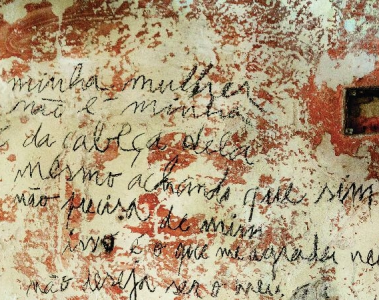 minha mulher
não é minha
da cabeça dela
mesmo achando que sim
não de mim
isso é o que me agrada
não ser o meu